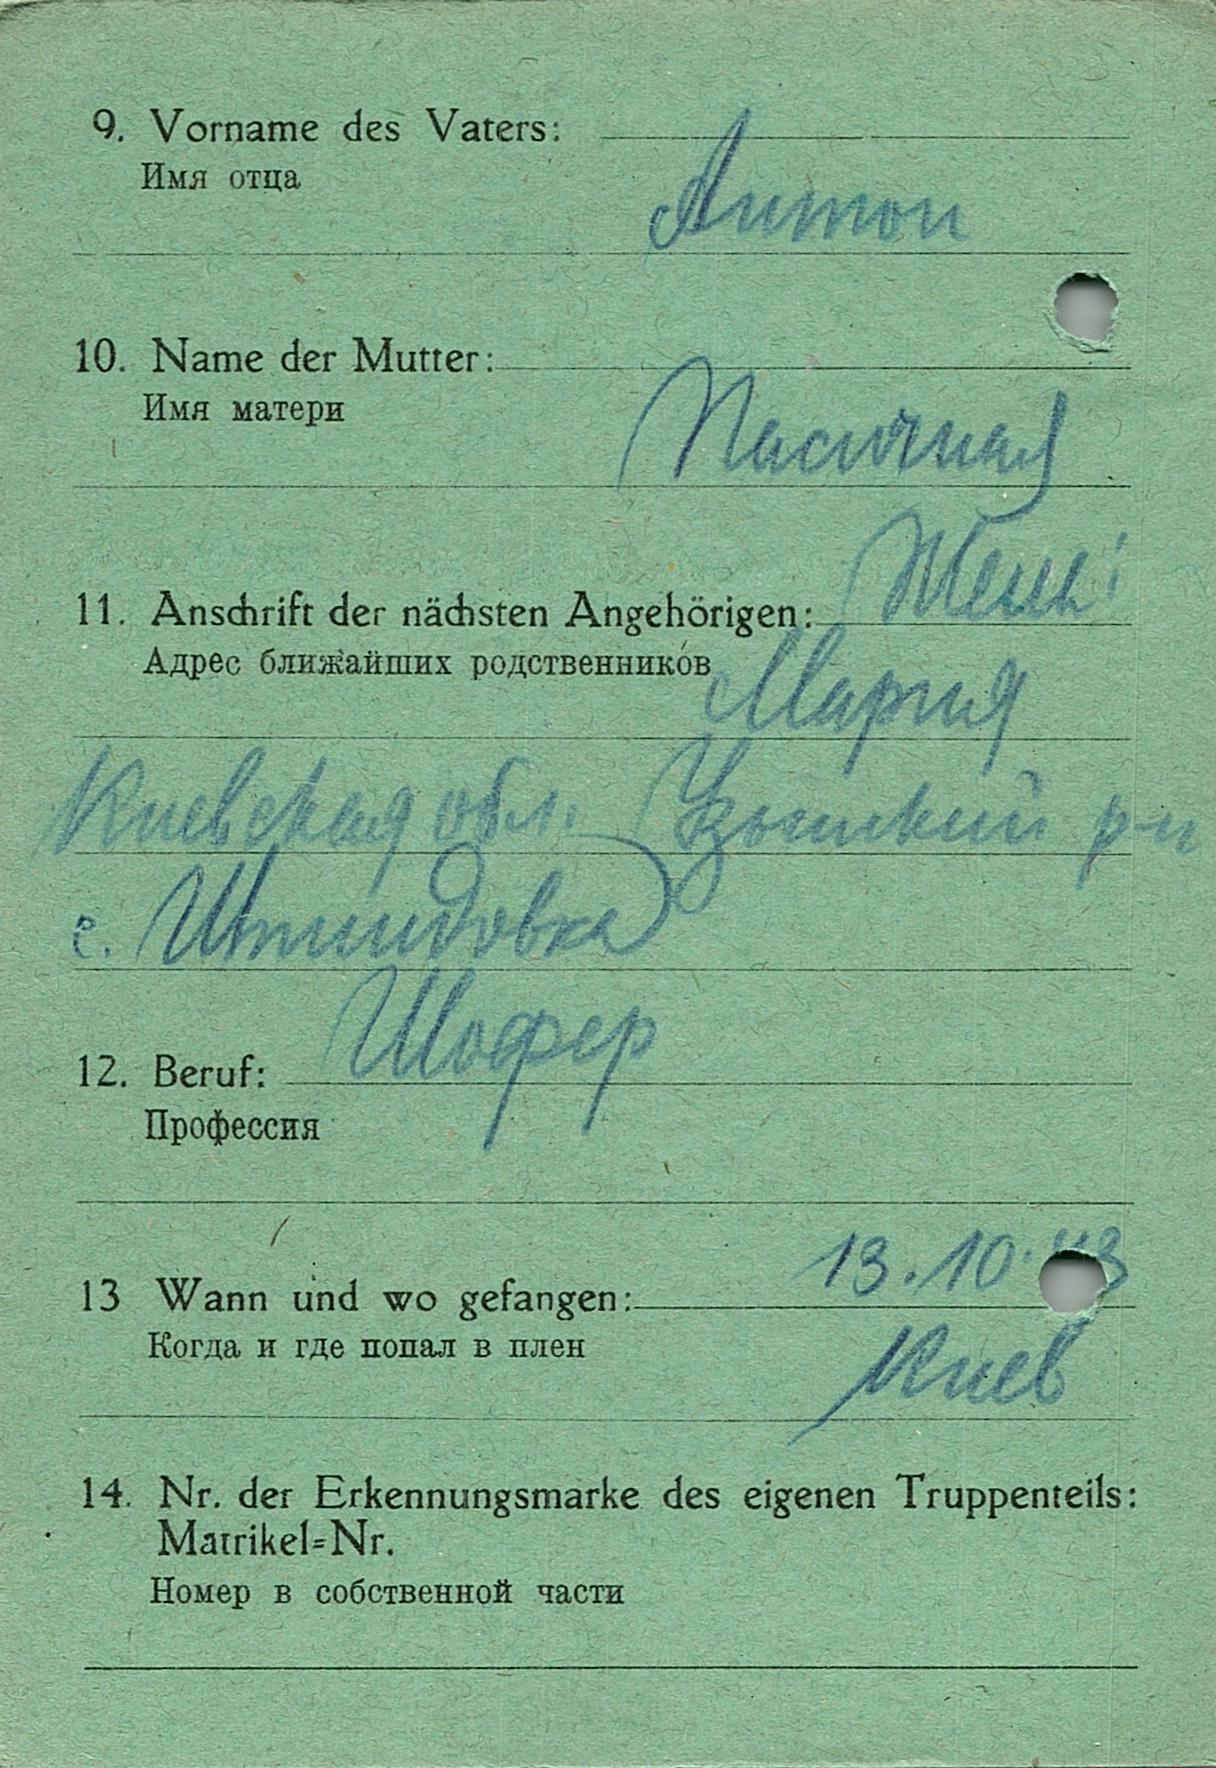 9. Vorname des Vaters:
Имя отца
Антон
10. Name der Mutter:
Имя матери
Пасичная
Жена:
11. Anschrift der nächsten Angehörigen:
Адрес ближайших родственников
Мария
Киевская обл. р-н
с.
Шофер
12. Beruf:
Профессия
13.10.43
13 Wann und wo gefangen:
Когда и где попал в плен
Киев
14. Nr. der Erkennungsmarke des eigenen Truppenteils:
Matrikel=Nr.
Номер в собственной части